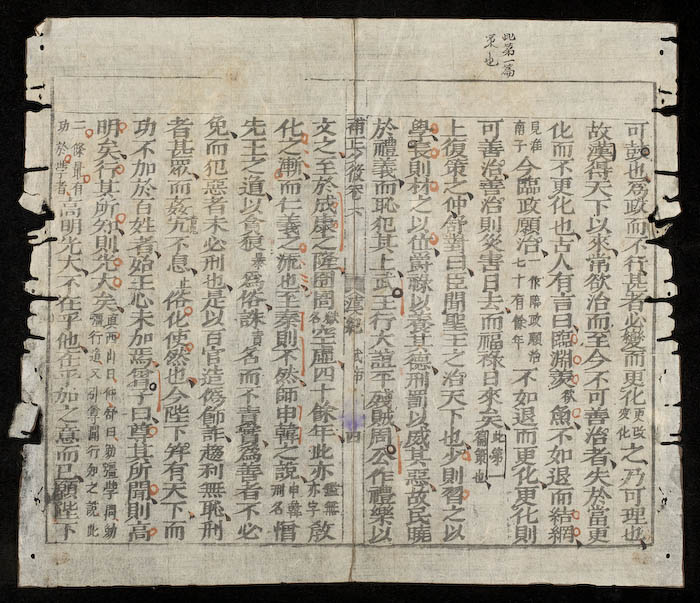 此第一篇
策也
可鼓也爲政而不行甚者必變而更化更改變化之乃可理也
故漢得天下以來常欲治而至今不可善治者失於當更
化而不更化也古人有言曰臨淵羡欲魚不如退而結網
見淮南子今臨政願治作臨政願治七十有餘年不如退而更化更化則
可善治善治則災害日去而福祿日來矣此第
上復策之仲舒對曰臣聞聖王之治天下也少則習之以
學長則材之以位爵祿以養其德刑罰以威其惡故民曉
於禮義而恥犯其上武王行大誼平殘賊周公作禮樂以
補正少微卷六 漢紀 武帝 四
文之至於成康之隆囹圄獄名空虛四十餘年此亦鑑無亦字敎
化之漸而仁義之流也至秦則不然師申韓之說申韓刑名憎
先王之道以貪狼暴爲俗誅責名而不責實爲善者不必
免而犯惡者未必刑也是以百官造僞飾詐趨利無恥刑
者甚眾而姦宄不息止俗化使然也今陛下幷有天下而
功不加於百姓者始王心未加焉曾子曰尊其所聞則高
明矣行其所知則光大矣真西山曰仲舒曰勉彊學問勉彊行道又引尊聞行知之說此
二條最有功於學者高明光大不在乎他在乎加之意而已願陛下